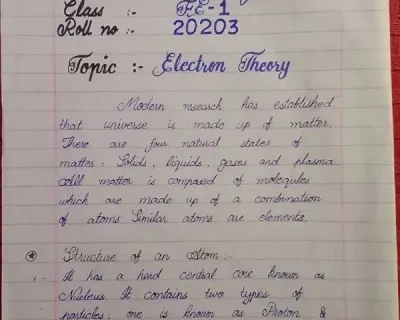 Class :- FE-1
Roll no :- 20203
Topic :- Electron Theory
Modern research has established
that universe is made up of matter.
There are four natural states of
matter: Solids, liquids, gases and plasma
All matter is composed of molequles
which are made up of a combination
of atoms. Similar atoms are elements.
Structure of an Atom :-
1- It has a hard central core known as
Nucleus It contains two types of
particles; one is known as Proton &